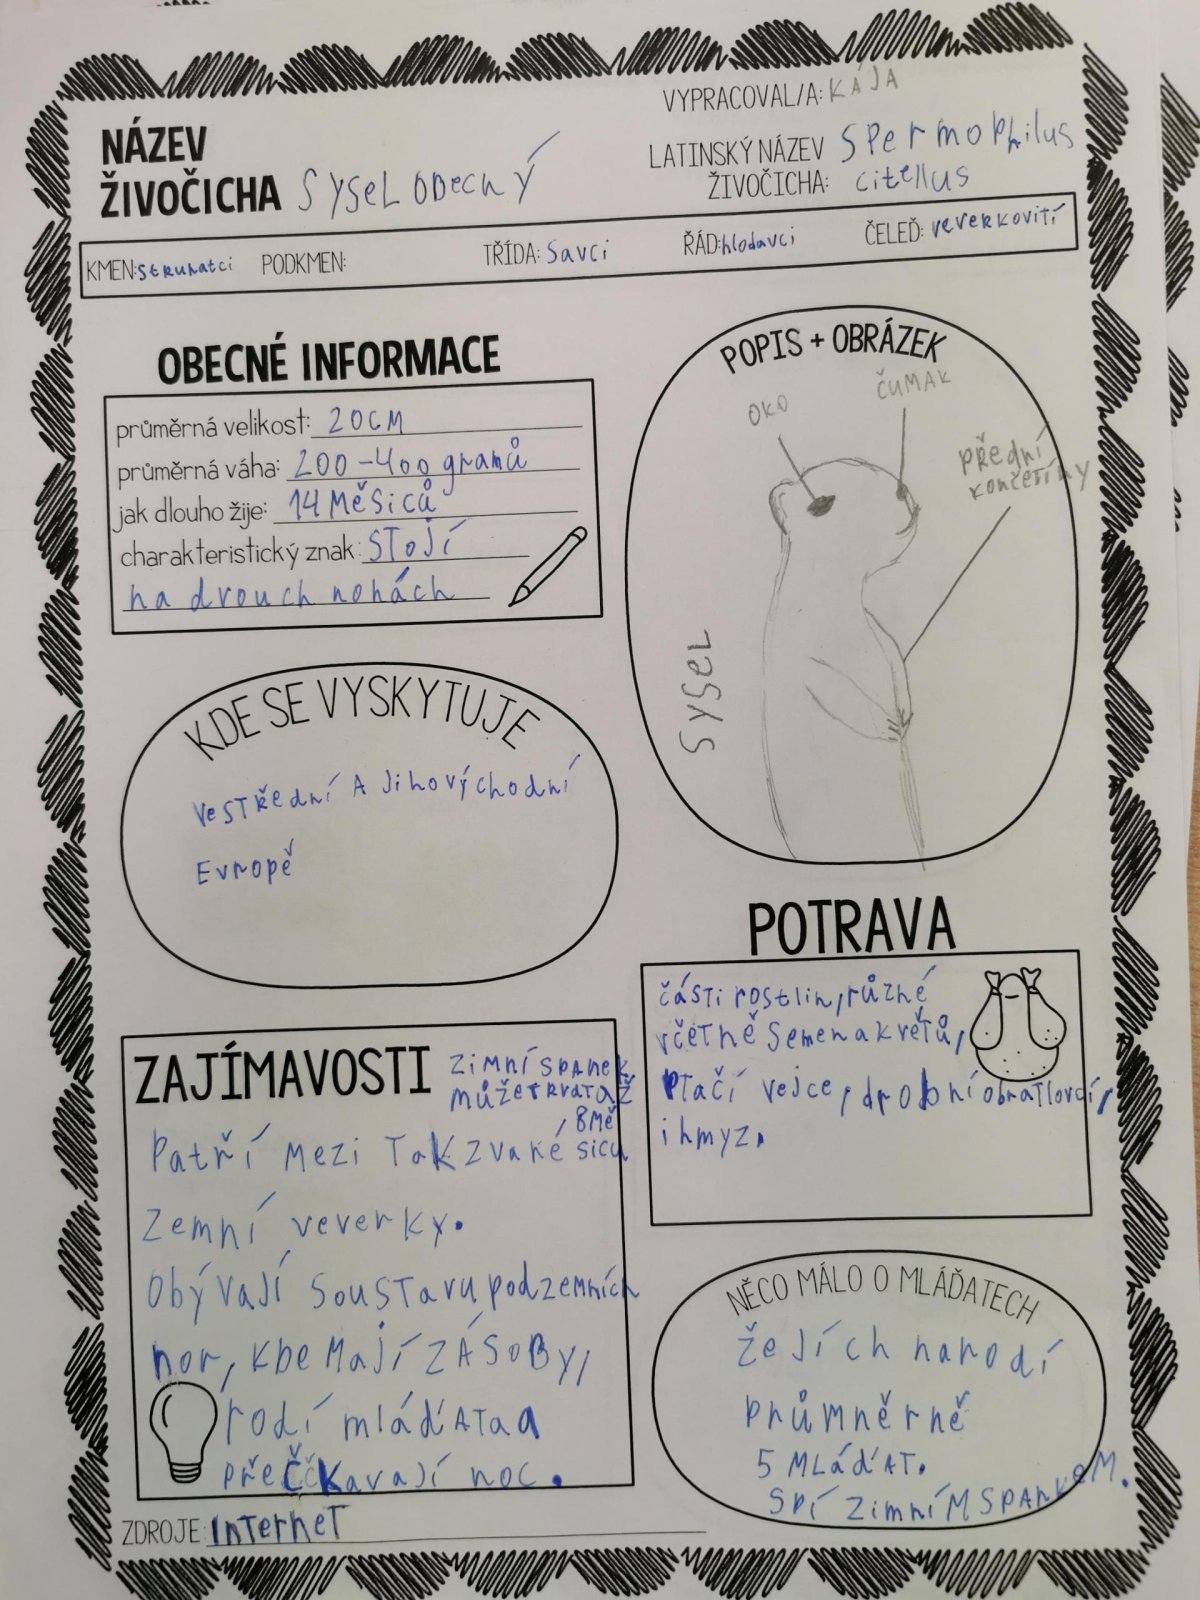 VYPRACOVAL/A: KÁJA
NÁZEV
ŽIVOČICHA SYSEL OBECNÝ
LATINSKÝ NÁZEV SPermophilus
ŽIVOČICHA: citellus
KMEN: strunatci PODKMEN: TŘÍDA: Savci ŘÁD: hlodavci ČELEĎ: veverkovití
OBECNÉ INFORMACE
průměrná velikost: 20CM
průměrná váha: 200-400 gramů
jak dlouho žije: 14 Měsiců
charakteristický znak: STOJÍ
na dvouch nohách
POPIS + OBRÁZEK
OKO
ČUMAK
přední
končetiny
SYSEL
KDE SE VYSKYTUJE
ve STŘední A Jihovýchodní
Evropě
POTRAVA
části rostlin, různé
včetně semen a květů,
Ptačí vejce, drobní obratlovci,
i hmyz.
ZAJÍMAVOSTI
Zimní SPANEK
můžeTRVATaž
, 8 Mě
siců
Patří Mezi Takzvané
Zemní veverky.
Obývají SouSTavu podzemních
nor, kde Mají ZÁSoBy,
rodí mláďATa a
přečkavají noc.
NĚCO MÁLO O MLÁĎATECH
že Jích narodí
průmněrně
5 MLáďAT.
SPí ZimníM SPAnkeM.
ZDROJE: InTerneT